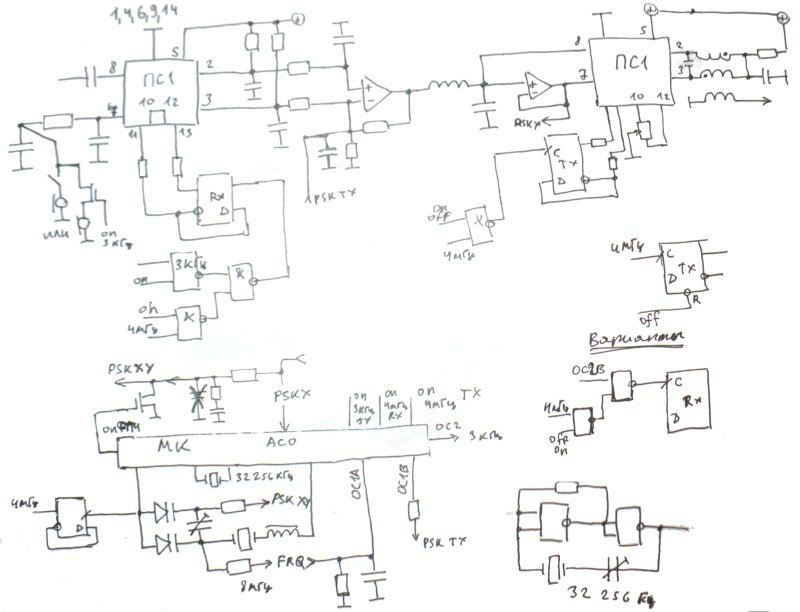 1,4,6,9,14
5
8
ПС1
2
3
7
10 12
11
13
+
-
или
on
3кГц
Rx
D
3кГц
on
on
4мГц
&
&
PSK TX
8
5
ПС1
2
3
7
10 12
+
-
PSKX
C
TX
D
on
off
4мГц
4мГц
C
TX
D
R
off
Варианты
OC2B
4мГц
off
on
C
Rx
D
PSKXY
PSKX
on
3кГц
TX
on
4мГц
RX
on
4мГц
TX
OC2
3кГц
МК
ACO
32 256 кГц
OC1A
OC1B
4мГц
D
PSK XY
FRQ
8мГц
PSK TX
32 256 кц